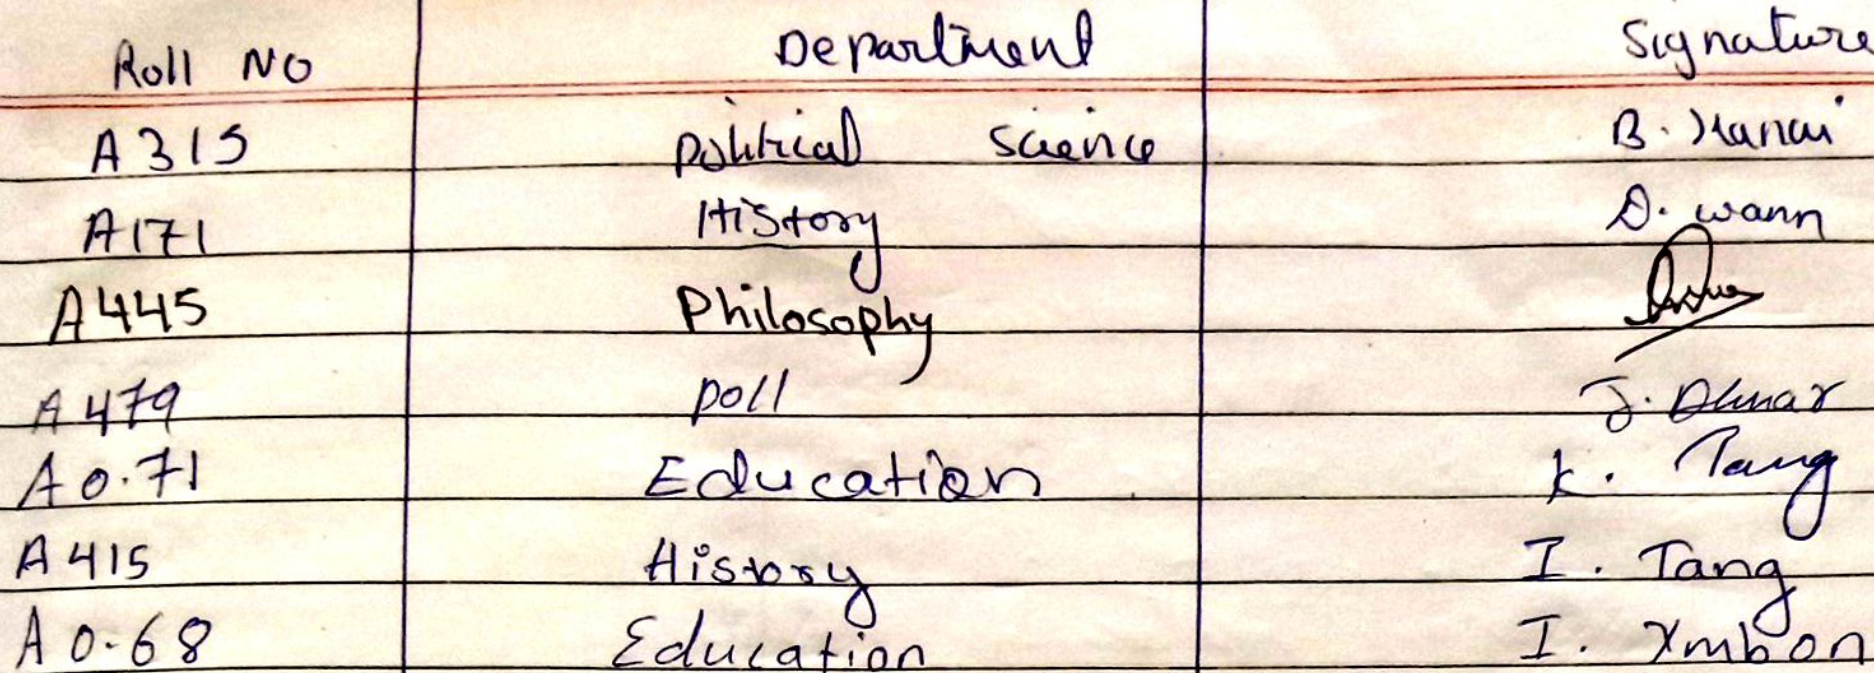 Roll No Department Signature
A315 Political Science B.
A171 History D. wann
A445 Philosophy
A479 Poll J.
A0.71 Education K. Tang
A415 History I. Tang
A0.68 Education I.